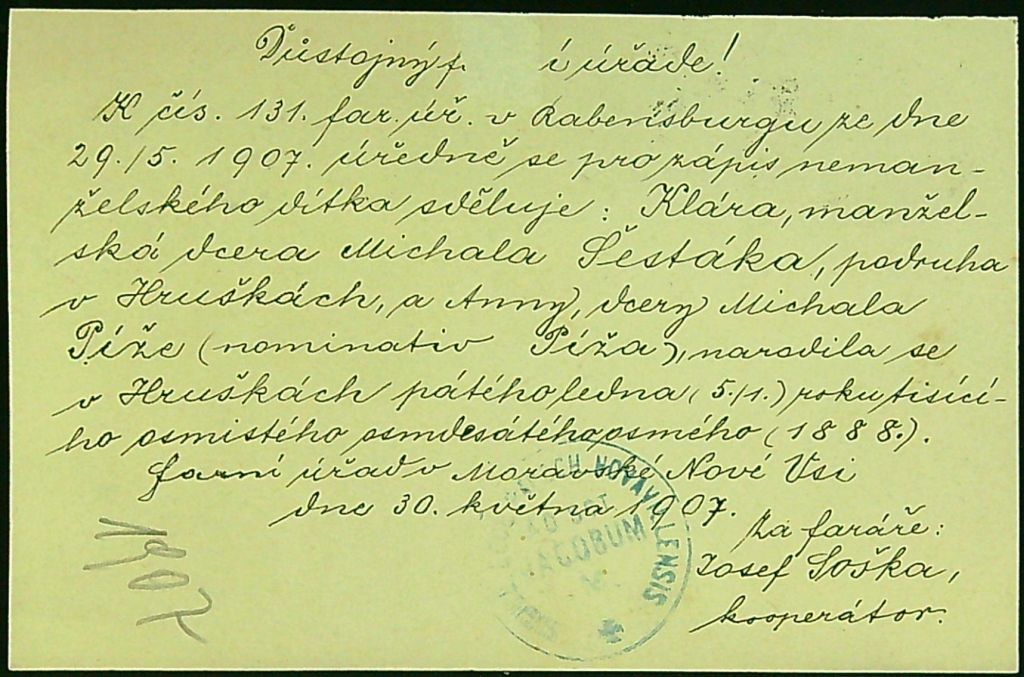 Důstojný f. í úřade!
K čís. 131. far. úř. v Rabensburgu ze dne
29./5. 1907. úředně se pro zápis neman-
želského dítka sděluje: Klára, manžel-
ská dcera Michala Šestáka, podruha
v Hruškách, a Anny, dcery Michala
Píže (nominativ Píža), narodila se
v Hruškách pátého ledna (5./1.) roku tisící-
ho osmistého osmdesátéhoosmého (1888.).
farní úřad v Moravské Nové Vsi
dne 30. května 1907.
Za faráře:
Josef Soška,
kooperátor.
JACOBUM
1907